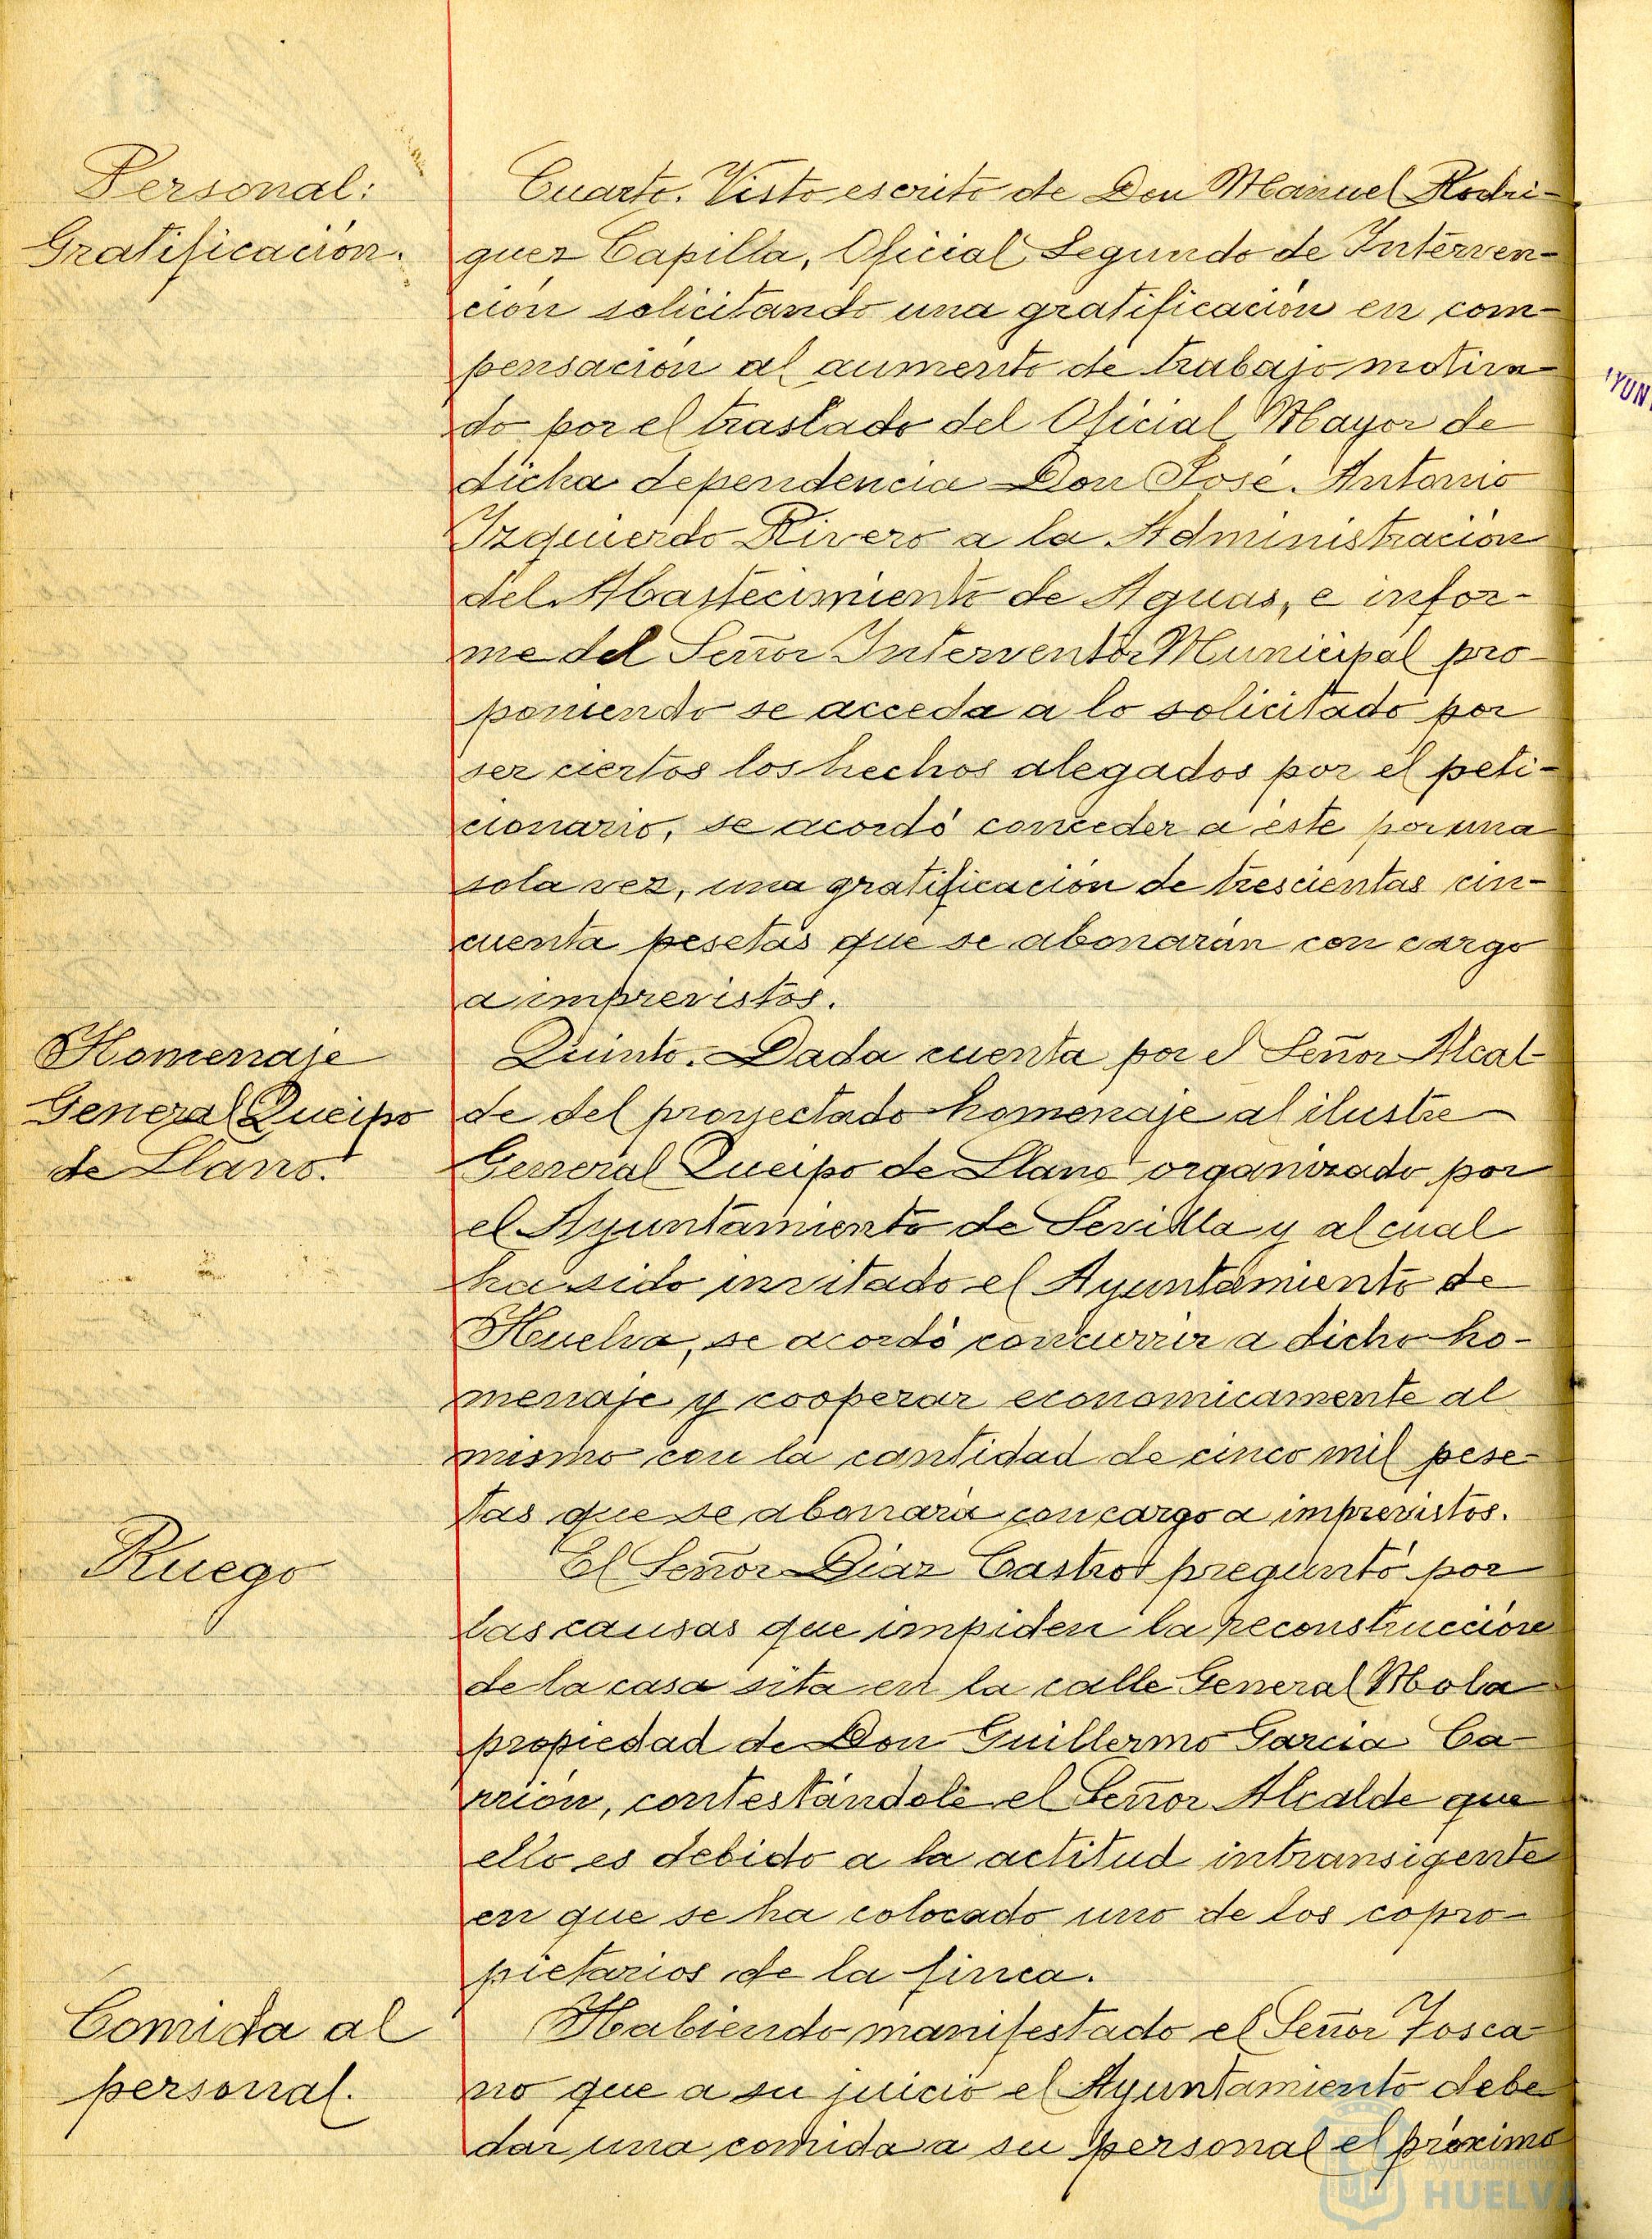 Personal:
Gratificación.
Cuarto. Visto escrito de Don Manuel Rodri-
guez Capilla, Oficial Segundo de Interven-
ción solicitando una gratificación en com-
pensación al aumento de trabajo motiva
do por el traslado del Oficial Mayor de
dicha dependencia Don José Antonio
Izquierdo Rivero a la Administración
del Abastecimiento de Aguas, e infor-
me del Señor Interventor Municipal pro-
poniendo se acceda a lo solicitado por
ser ciertos los hechos alegados por el peti-
cionario, se acordó conceder a éste por una
sola vez, una gratificación de trescientas cin-
cuenta pesetas que se abonarán con cargo
a imprevistos.
Homenaje
General Queipo
de Llano.
Quinto. Dada cuenta por el Señor Alcal-
de del proyectado homenaje al ilustre
General Queipo de Llano organizado por
el Ayuntamiento de Sevilla y al cual
ha sido invitado el Ayuntamiento de
Huelva, se acordó concurrir a dicho ho-
menaje y cooperar economicamente al
mismo con la cantidad de cinco mil pese-
tas que se abonará con cargo a imprevistos.
Ruego
El Señor Diaz Castro preguntó por
las causas que impiden la reconstrucción
de la casa sita en la calle General Mola
propiedad de Don Guillermo Garcia Ca-
rrión, contestándole el Señor Alcalde que
ello es debido a la actitud intransigente
en que se ha colocado uno de los copro-
pietarios de la finca.
Comida al
personal.
Habiendo manifestado el Señor Tosca-
no que a su juicio el Ayuntamiento debe
dar una comida a su personal el próximo
Ayuntamiento de
HUELVA